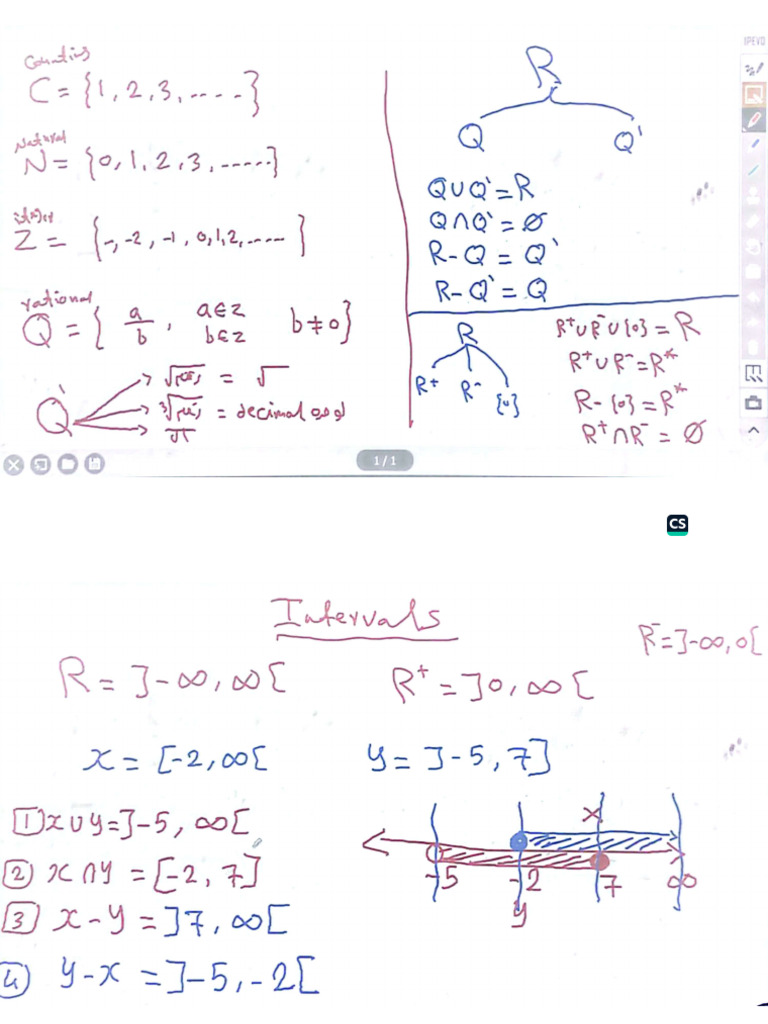 Counting
C = {1, 2, 3, .....}
Natural
N = {0, 1, 2, 3, ......}
Z = {-, -2, -1, 0, 1, 2, ......}
rational
Q = { a/b , a∈z b∈z b≠0}
Q'
= √
= decimal
π
R
Q Q'
Q∪Q' = R
Q∩Q' = ∅
R-Q = Q'
R-Q' = Q
R
R⁺ R⁻ {0}
R⁺∪R⁻∪{0} = R
R⁺∪R⁻ = R*
R-{0} = R*
R⁺∩R⁻ = ∅
IPEVO
1/1
CS
Intervals
R = ]-∞, ∞[
R⁺ = ]0, ∞[
R⁻ = ]-∞, 0[
x = [-2, ∞[
y = ]-5, 7]
1 x∪y = ]-5, ∞[
2 x∩y = [-2, 7]
3 x-y = ]7, ∞[
4 y-x = ]-5, -2[
x
-5 -2 7 ∞
y